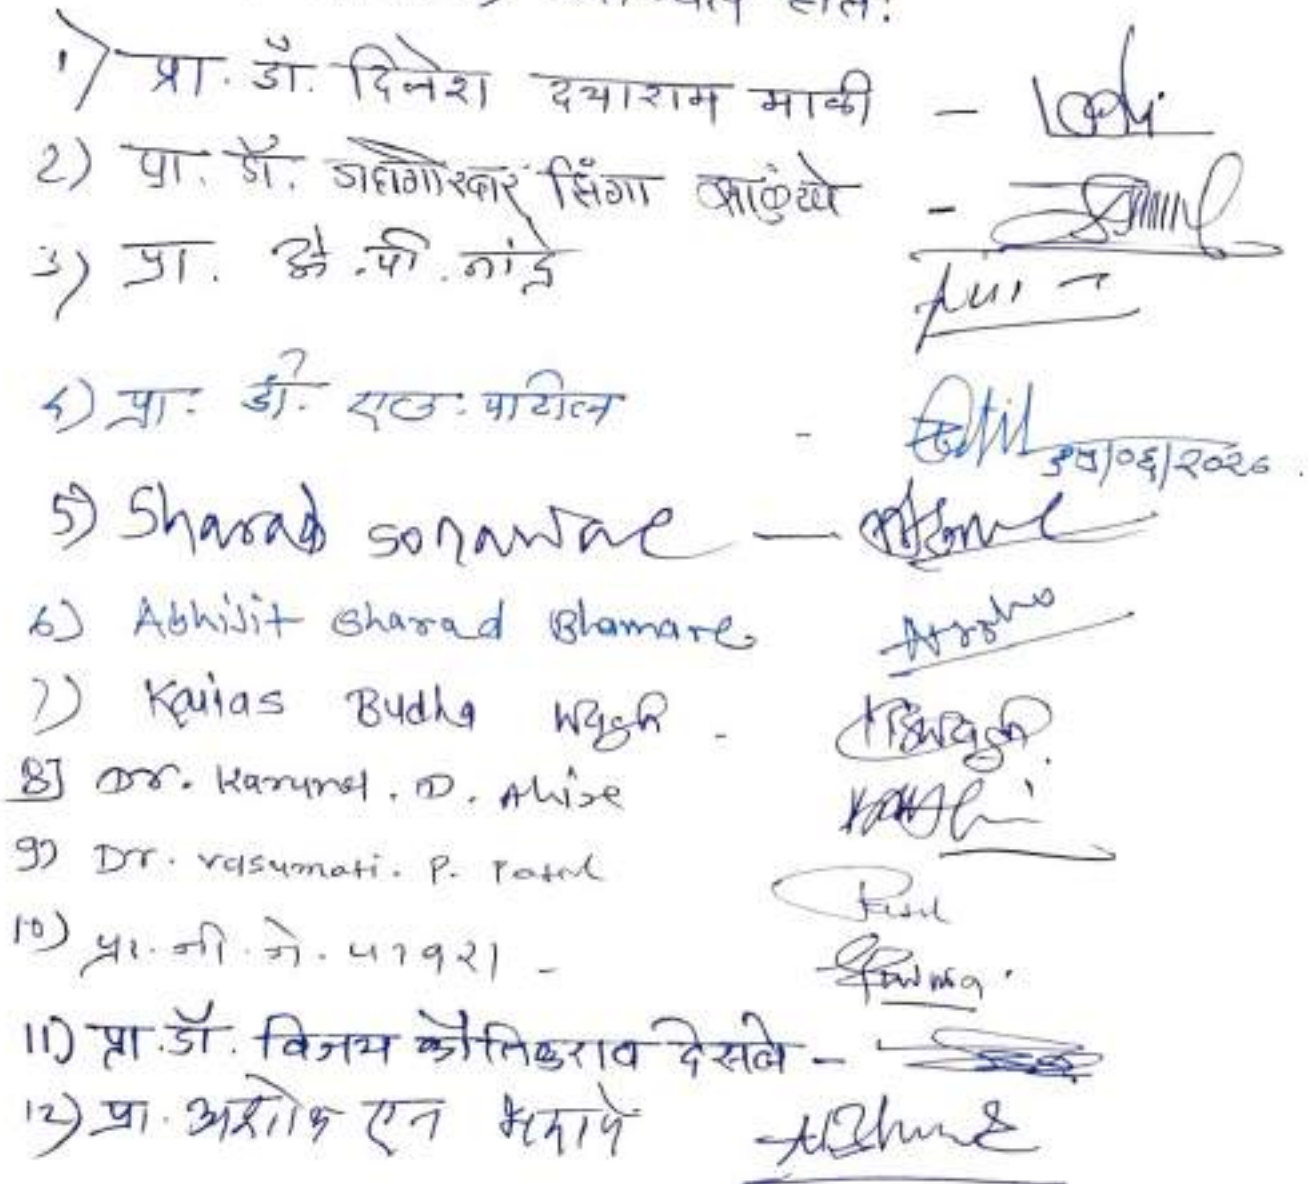 1) प्रा. डॉ. दिनेश दयाराम माळी -
2) प्रा. डॉ. सिंगा साळुंखे -
3) प्रा. जे. पी. नांद्रे
4) प्रा. डी. एल. पाटील - १५/०६/२०२०
5) Sharad Sonawane -
6) Abhijit Sharad Bhamare
7) Kailas Budha Wagh -
8] Dr. Karuna. D. Ahire
9) Dr. Vasumati. P. Patil
10) प्रा. -
11) प्रा. डॉ. विजय कौतिकराव देसले -
12) प्रा. अशोक एन